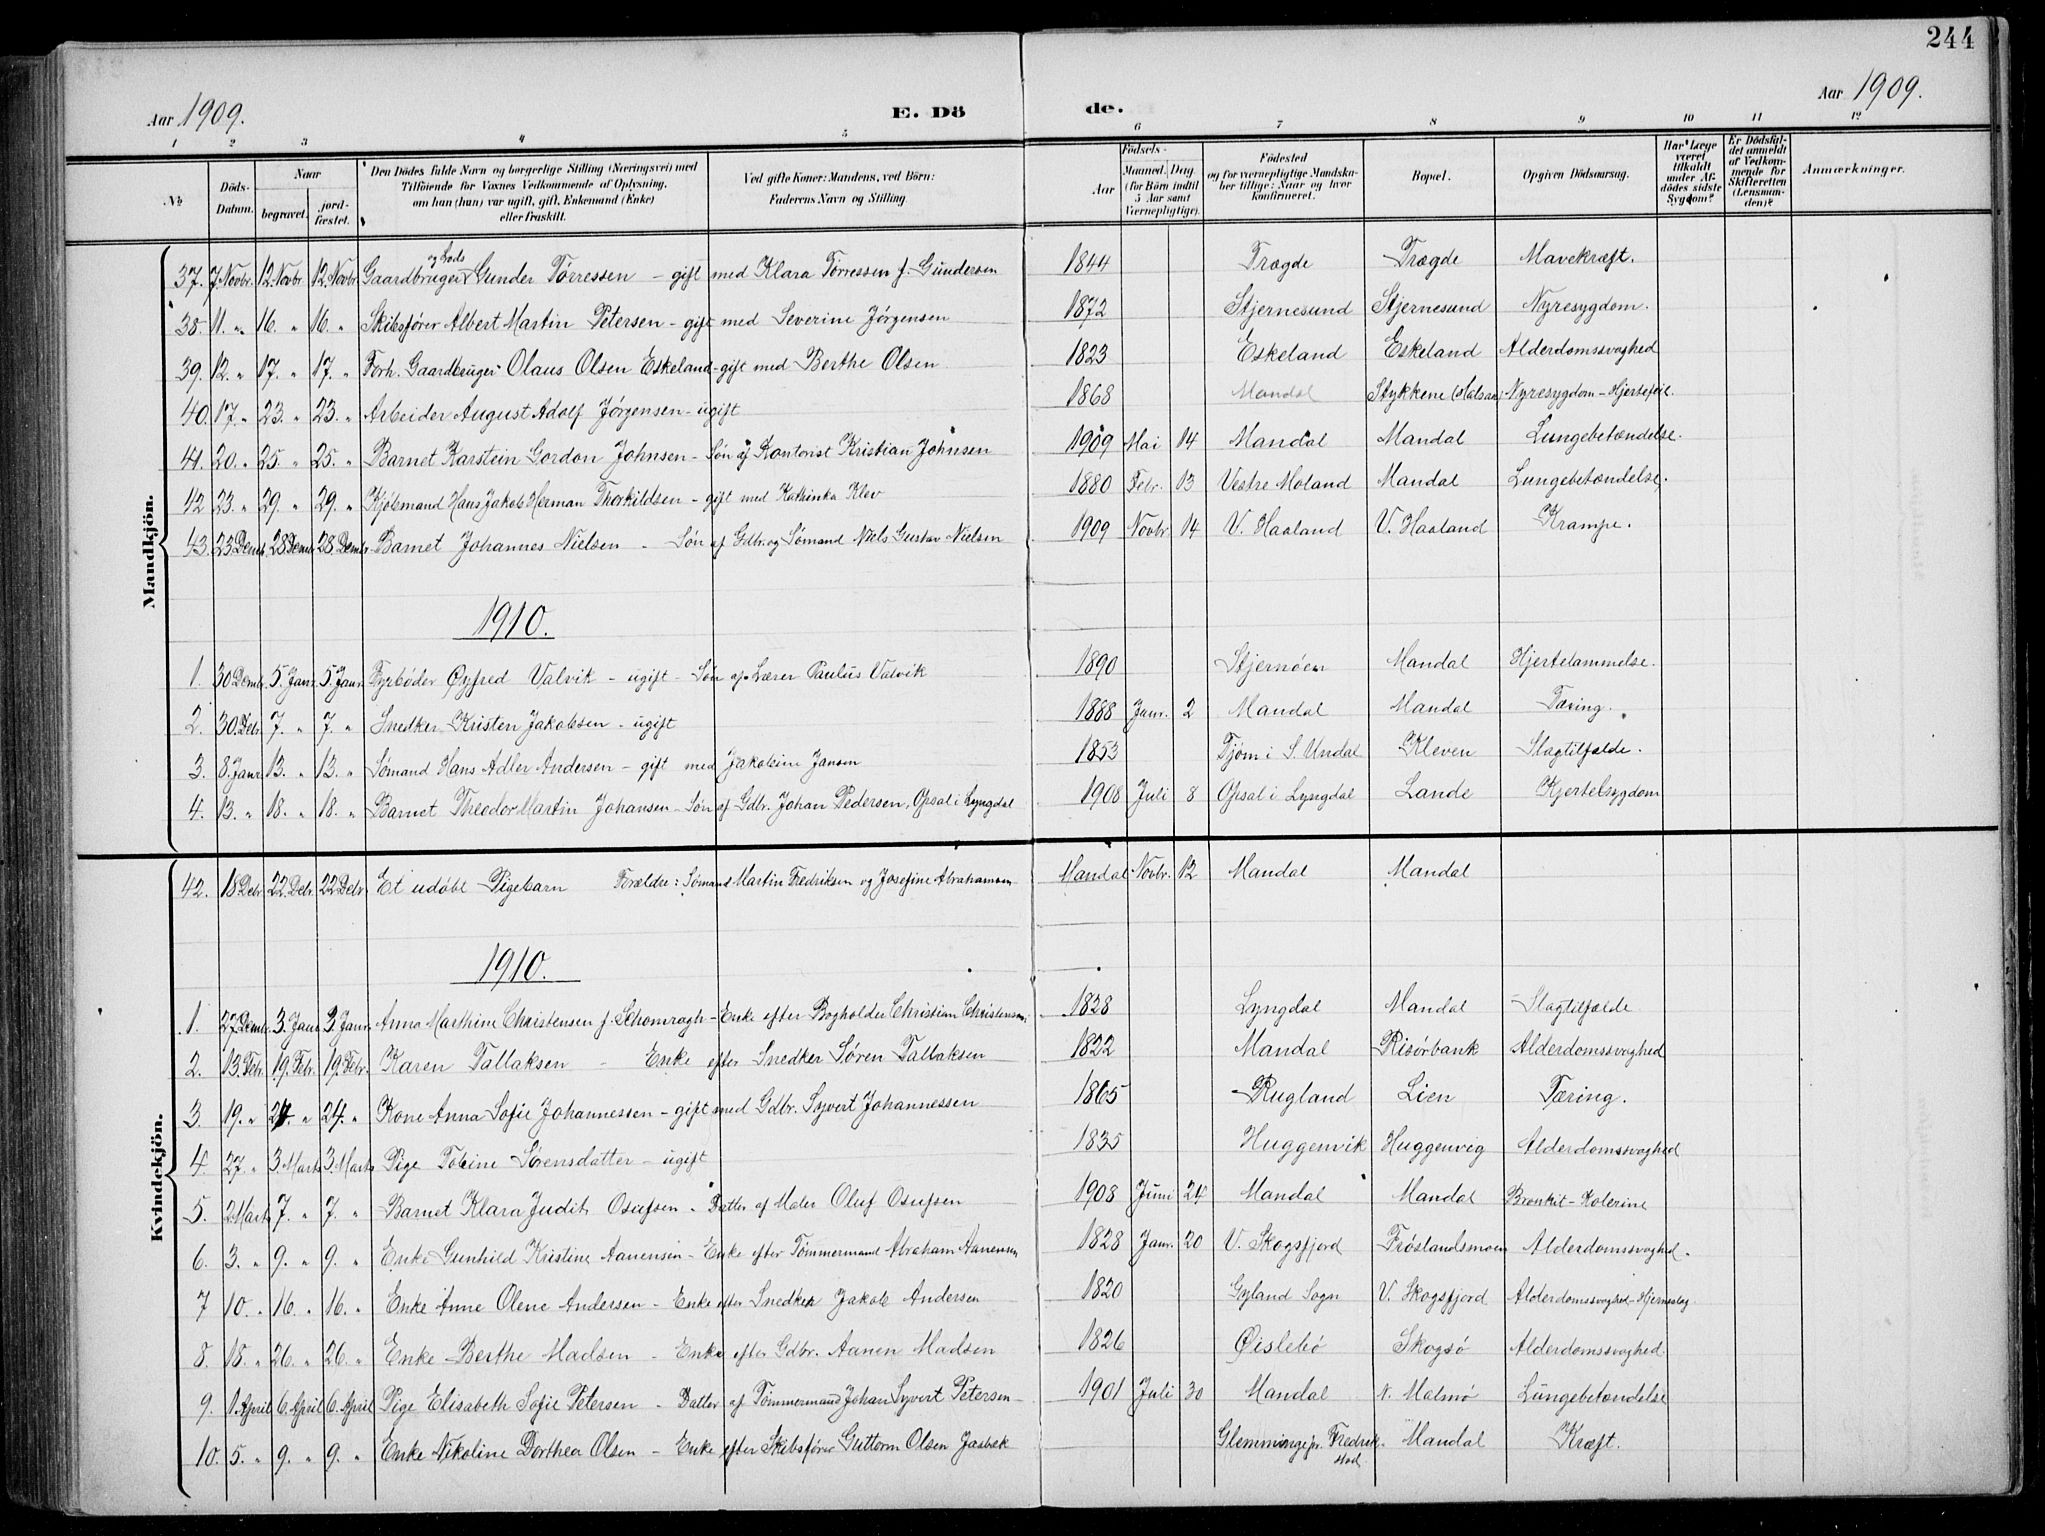 244
Aar 1909.
E. Dö
de.
Aar 1909.
1 2 3 4 5 6 7 8 9 10 11 12
No
Döds-Datum.
Naar
begravet.
jord-fæstet.
Den Dödes fulde Navn og borgerlige Stilling (Næringsvei) med
Tilföiende for Voxnes Vedkommende af Oplysning,
om han (hun) var ugift, gift, Enkemand (Enke)
eller fraskilt.
Ved gifte Koner: Mandens, ved Börn:
Faderens Navn og Stilling.
Födsels-
Aar
Maaned. Dag
(for Börn indtil
5 Aar samt
Værnepligtige).
Födested
og for værnepligtige Mandska-
ber tillige: Naar og hvor
konfirmeret.
Bopæl.
Opgiven Dödsaarsag.
Har Læge
været
tilkaldt
under Af-
dödes sidste
Sygdom?
Er Dödsfal-
det anmeldt
af Vedkom-
mende for
Skifteretten
(Lensman-
den)?
Anmærkninger.
Mandkjön.
37. 7 Novbr. 12 Novbr 12. Novbr. Gaardbruger og Lods Gunder Tørressen - gift med Klara Tørressen f. Gundersen 1844 Trægde Trægde Mavekræft.
38. 11. " 16. " 16. " Skibsfører Albert Martin Petersen - gift med Severine Jørgensen 1872 Stjernesund Stjernesund Nyresygdom.
39. 12. " 17. " 17. " Forh. Gaardbruger Olaus Olsen Eskeland - gift med Berthe Olsen 1823 Eskeland Eskeland Alderdomssvaghed
40. 17. " 23. " 23. " Arbeider August Adolf Jørgensen - ugift 1868 Mandal Stykkene Nyresygdom - Hjertefeil.
41. 20. " 25. " 25. " Barnet Karstein Gordon Johnsen - Søn af Kontorist Kristian Johnsen 1909 Mai 14 Mandal Mandal Lungebetændelse.
42 23. " 29. " 29. " Kjølsmand Hans Jakob Herman Thorkildsen - gift med Kathinka Klev 1880 Febr. 13 Vestre Moland Mandal Lungebetændelse.
43. 23 Demb. 28 Demb 28 Demb. Barnet Johannes Nielsen - Søn af Gdbr. og Sømand Niels Gustav Nielsen 1909 Novbr 14 V. Haaland V. Haaland Krampe.
1910.
1. 30 Demb. 5. Janr 5. Janr. Fyrbøder Øyfred Valvik - ugift - Søn af Lærer Paulus Valvik 1890 Stjernøen Mandal Hjertelammelse.
2. 30. Debr. 7. " 7. " Snedker Kristen Jakobsen - ugift 1888 Janr. 2 Mandal Mandal Tæring.
3. 8. Janr 13. " 13. " Sømand Hans Adler Andersen - gift med Jakobine Jansen 1853 Tjøm i S. Undal Kleven Slagtilfælde.
4. 13. " 18. " 18. " Barnet Theodor Martin Johansen - Søn af Gdbr. Johan Pedersen, Opsal i Lyngdal 1908 Juli 8 Opsal i Lyngdal Lande Kjertelsygdom
Kvindekjön.
42. 18 Debr. 22. Debr 22 Debr. Et udøbt Pigebarn Forældre: Sømand Martin Fredriksen og Josefine Abrahamsen Mandal Novbr. 12 Mandal Mandal
1910.
1. 27 Demb. 3. Janr 3. Janr. Anna Marthine Christensen f. Schomragh - Enke efter Bogholder Christian Christensen. 1828 Lyngdal Mandal Slagtilfælde
2. 13. Febr. 19. Febr. 19. Febr. Karen Tallaksen - Enke efter Snedker Søren Tallaksen 1822 Mandal Risørbank Alderdomssvaghed
3 19. " 24. " 24. " Kone Anna Sofie Johannessen - gift med Gdbr. Syvert Johannessen 1865 Rugland Lien Tæring.
4. 27 " 3. Marts 3. Marts Pige Tobine Sørensdatter - ugift 1835 Huggenvik Huggenvig Alderdomssvaghed
5. 2 Marts 7. " 7. " Barnet Klara Judith Osufsen - Datter af Maler Oluf Osufsen 1908 Juni 24 Mandal Mandal Bronkit - Kolerine
6. 3. " 9. " 9. " Enke Gunhild Kristine Aanensen - Enke efter Tømmermand Abraham Aanensen 1828 Janr. 20 V. Skogsfjord Frøslandsmoen Alderdomssvaghed.
7 10. " 16. " 16. " Enke Anne Olene Andersen - Enke efter Snedker Jakob Andersen 1820 Gyland Sogn V. Skogsfjord Alderdomssvaghed - Hjerneslag
8. 18. " 26. " 26. " Enke Berthe Madsen - Enke efter Gdbr. Aanen Madsen 1826 Øislebø Skogsø Alderdomssvaghed
9. 1. April 6. April 6. April Pige Elisabeth Sofie Petersen - Datter af Tømmermand Johan Syvert Petersen 1901 Juli 30 Mandal N. Malmø Lungebetændelse
10. 5. " 9. " 9. " Enke Nikoline Dorthea Olsen - Enke efter Skibsfører Guttorm Olsen Jasbæk Glemminge pr. Fredrikstad Mandal Kræft.